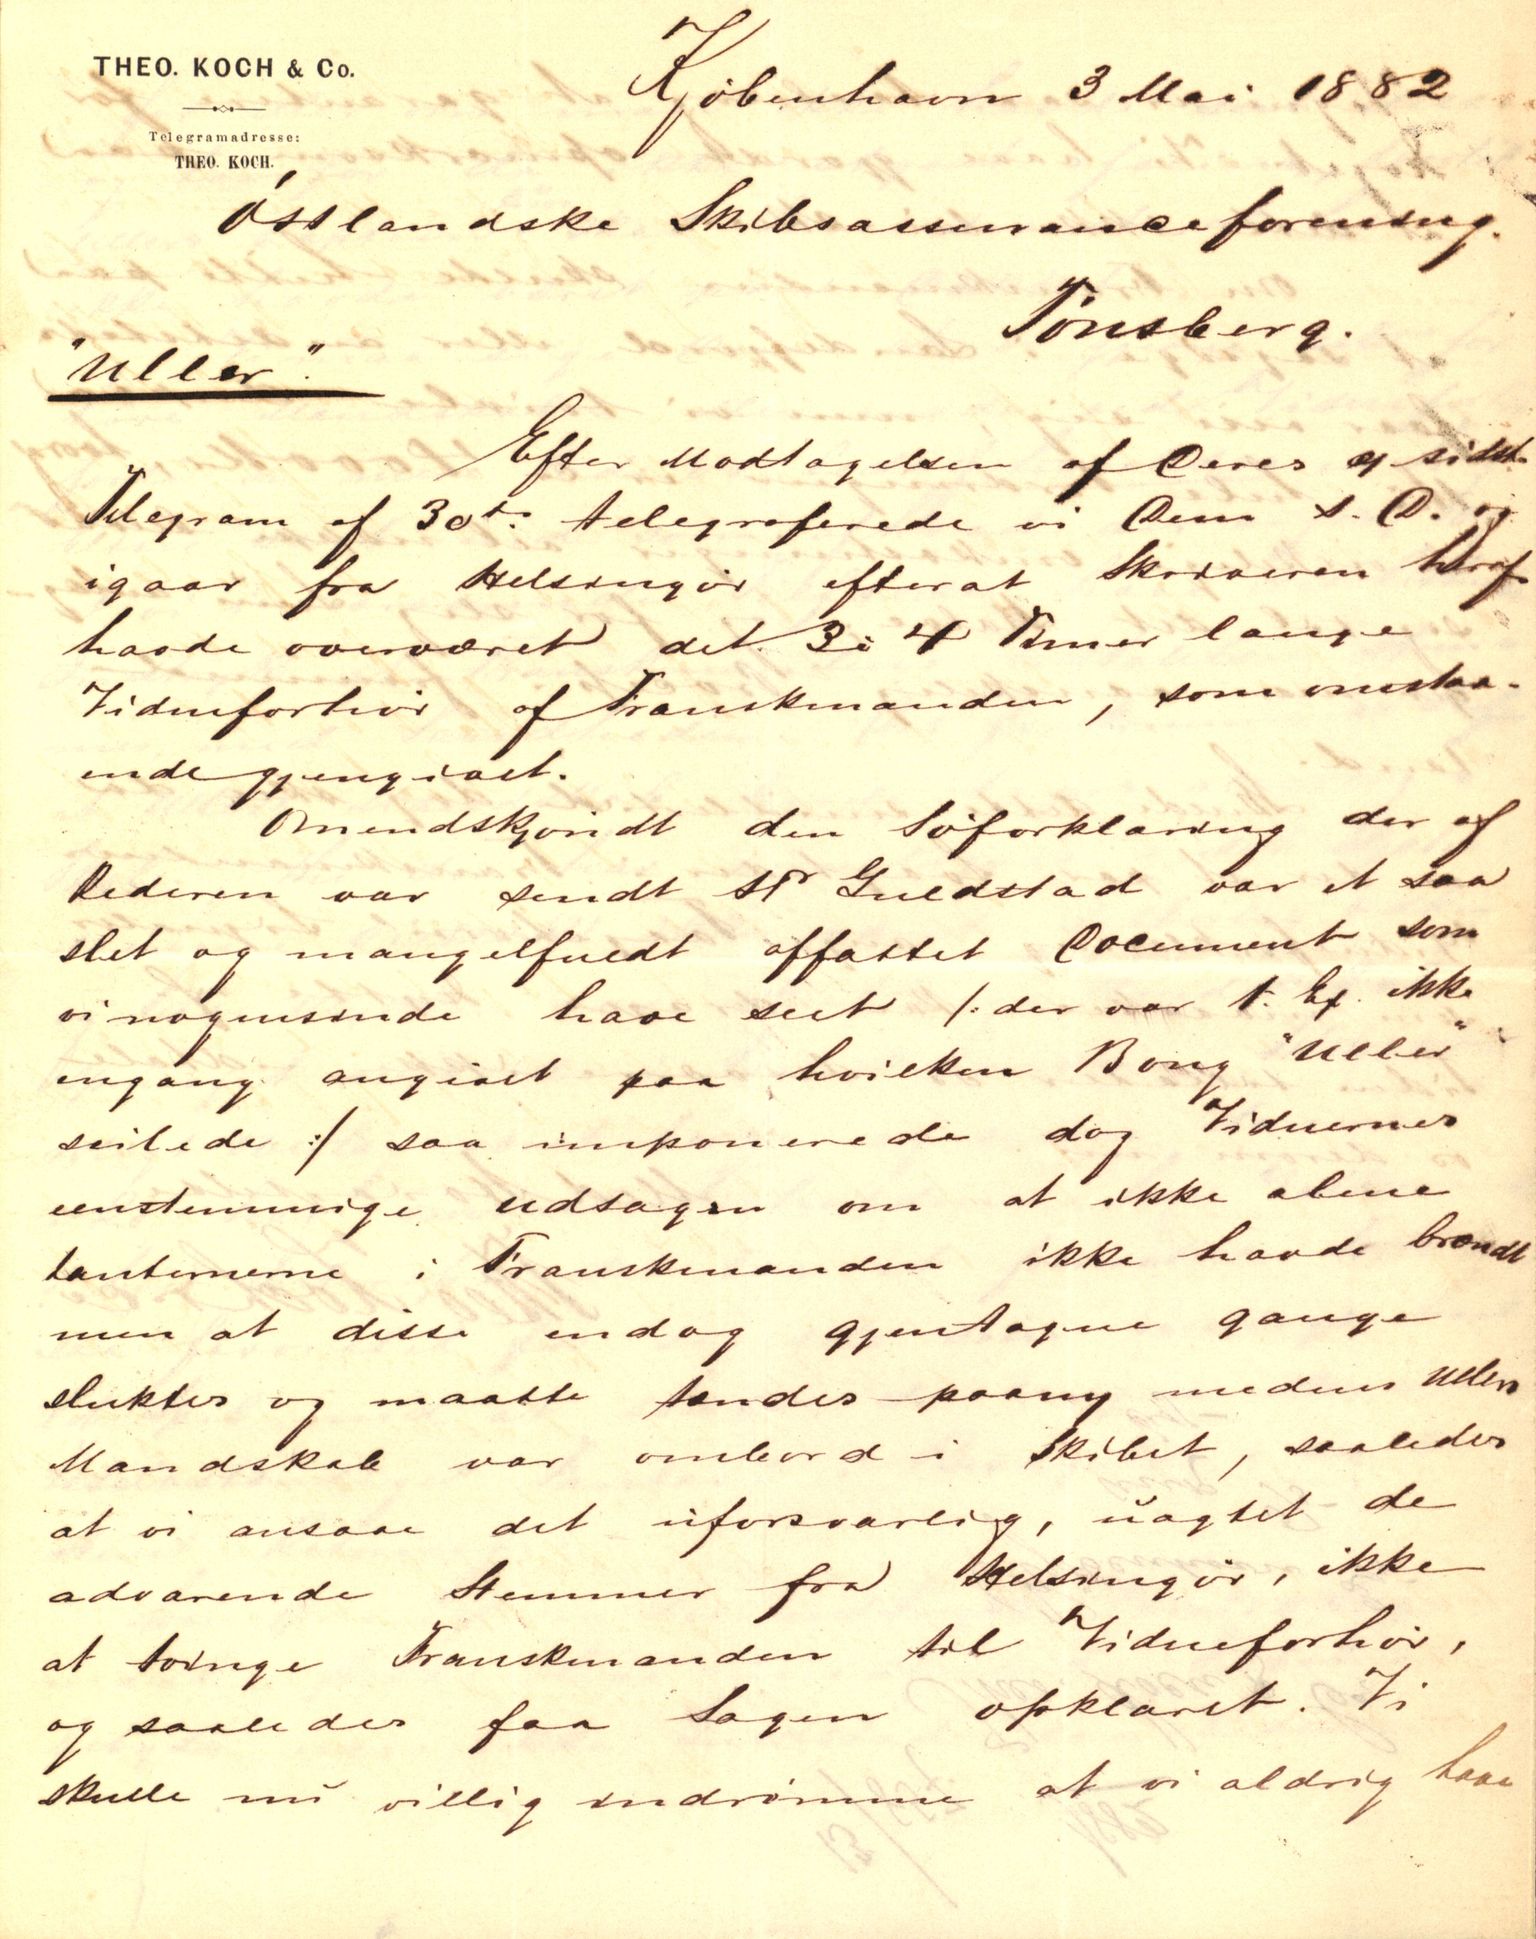 THEO. KOCH & Co.
Telegramadresse:
THEO. KOCH.
Kjøbenhavn 3 Mai 1882
Østlandske Skibsassuranceforening.
Tønsberg.
"Uller".
Efter Modtagelsen af Deres sidste
Telegram af 30te telegraferede vi Dem s. D. og
igaar fra Helsingør efterat Skriveren heraf
havde overværet det 3 à 4 Timer lange
Vidneforhør af Franskmanden, som omstaa-
ende gjengivet.
Omendskjøndt den Søforklaring der af
Rederen var sendt Hr Guldstad var et saa
slet og mangelfuldt affattet Document som
vi nogensinde have seet /: der var t. Ex. ikke
engang angivet paa hvilken Boug "Uller"
seilede :/ saa imponerede dog Vidnernes
eenstemmige Udsagn om at ikke alene
Lanternerne i Franskmanden ikke havde brændt
men at disse endog gjentagne gange
sluktes og maatte tændes paany medens Ullers
Mandskab var ombord i Skibet, saaledes
at vi ansaae det uforsvarlig, uagtet de
advarende Stemmer fra Helsingør, ikke
at tvinge Franskmanden til Vidneforhør,
og saaledes faa Sagen opklaret. Vi
skulle nu villig indrømme at vi aldrig have